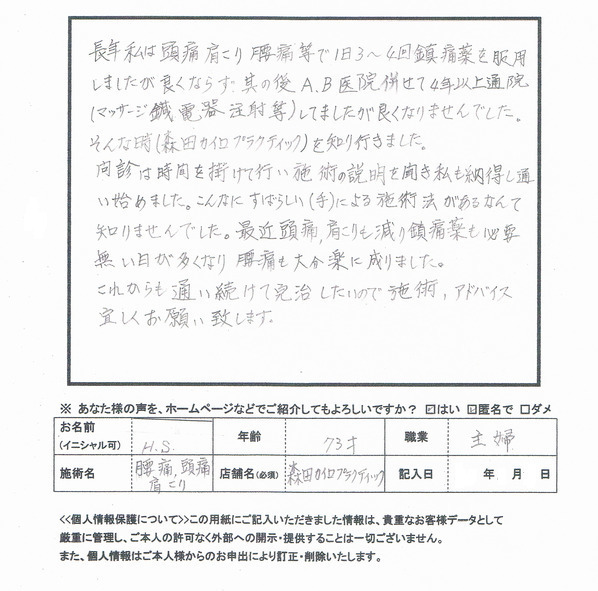 長年私は頭痛肩こり腰痛等で1日3〜4回鎮痛薬を服用
しましたが良くならず其の後A.B医院併せて4年以上通院
(マッサージ鍼電器注射等)してましたが良くなりませんでした。
そんな時(森田カイロプラクティック)を知り行きました。
問診は時間を掛けて行い施術の説明を聞き私も納得し通
い始めました。こんなにすばらしい(手)による施術法があるなんて
知りませんでした。最近頭痛,肩こりも減り鎮痛薬も必要
無い日が多くなり腰痛も大分楽に成りました。
これからも通い続けて完治したいので施術,アドバイス
宜しくお願い致します。
※ あなた様の声を、ホームページなどでご紹介してもよろしいですか? ☑はい ☑匿名で □ダメ
お名前(イニシャル可) H.S. 年齢 73才 職業 主婦
施術名 腰痛,頭痛 肩こり 店舗名(必須) 森田カイロプラクティック 記入日 年 月 日
<<個人情報保護について>>この用紙にご記入いただきました情報は、貴重なお客様データとして
厳重に管理し、ご本人の許可なく外部への開示・提供することは一切ございません。
また、個人情報はご本人様からのお申出により訂正・削除いたします。